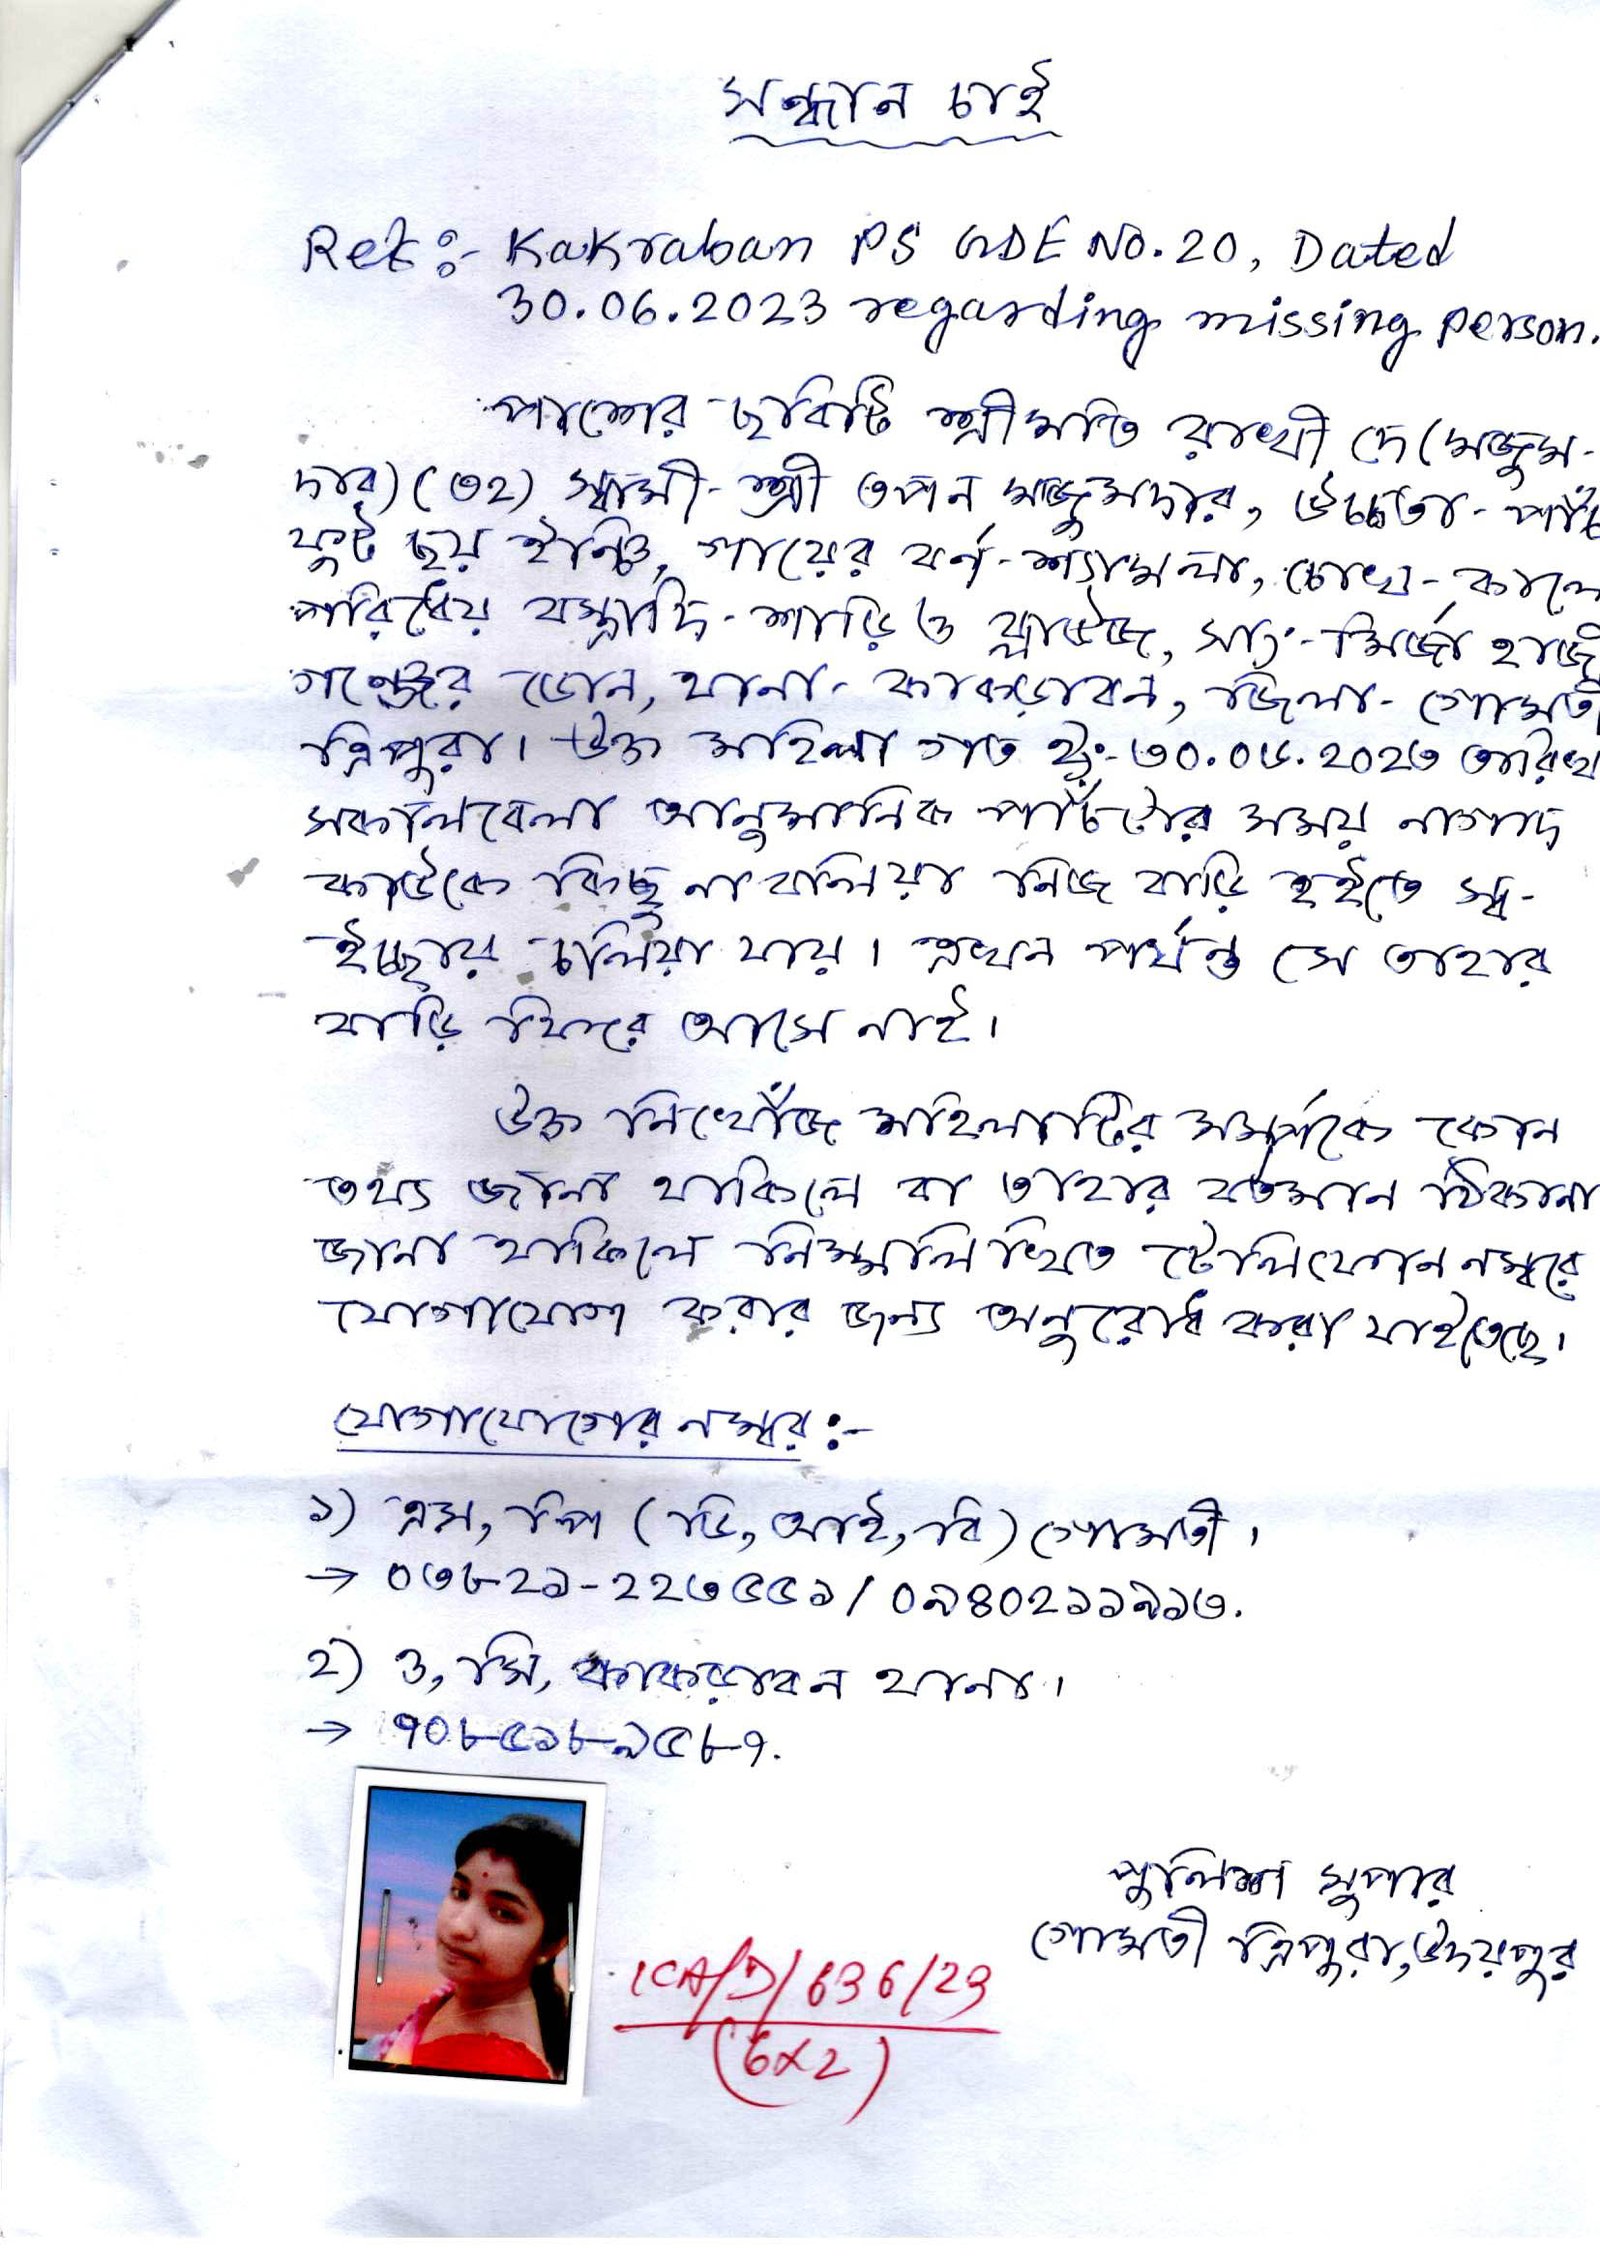 সন্ধান চাই
Ref:- Kakraban PS GDE No.20, Dated
30.06.2023 regarding missing person.
পাশের ছবিটি শ্রীমতি রাখী দে (মজুম-
দার) (৩২) স্বামী- শ্রী তপন মজুমদার, উচ্চতা- পাঁচ
ফুট ছয় ইঞ্চি, গায়ের বর্ন- শ্যামলা, চোখ- কালো
পরিধেয় বস্ত্রাদি- শাড়ি ও ব্লাউজ, সাং- মির্জা হাজী
গঞ্জের ডোন, থানা- কাকড়াবন, জিলা- গোমতী
ত্রিপুরা। উক্ত মহিলা গত ইং- ৩০.০৬.২০২৩ তারিখ
সকালবেলা আনুমানিক পাঁচটার সময় নাগাদ
কাউকে কিছু না বলিয়া নিজ বাড়ি হইতে স্ব-
ইচ্ছায় চলিয়া যায়। এখন পর্যন্ত সে তাহার
বাড়ি ফিরে আসে নাই।
উক্ত নিখোঁজ মহিলাটির সম্পর্কে কোন
তথ্য জানা থাকিলে বা তাহার বর্তমান ঠিকানা
জানা থাকিলে নিম্মলিখিত টেলিফোন নম্বরে
যোগাযোগ করার জন্য অনুরোধ করা যাইতেছে।
যোগাযোগের নম্বর:-
১) এস, পি (ডি, আই, বি) গোমতী।
→ ০৩৮২১-২২৩৫৫১/০৯৪০২১১৯১৩.
২) ও, সি, কাকড়াবন থানা।
→ ৭০৮৫১৮৯৫৮৭.
পুলিশ সুপার
গোমতী ত্রিপুরা, উদয়পুর
ICA/D/636/23
(6x2)